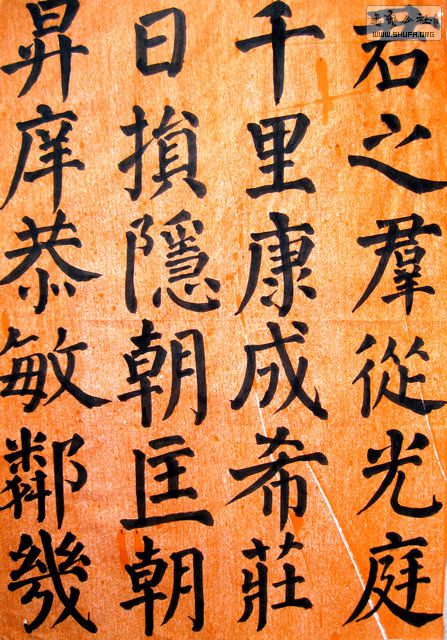 君之羣從光庭
千里康成希莊
日損隱朝匡朝
昇庠恭敏鄰幾
书艺公社
WWW.SHUFA.ORG